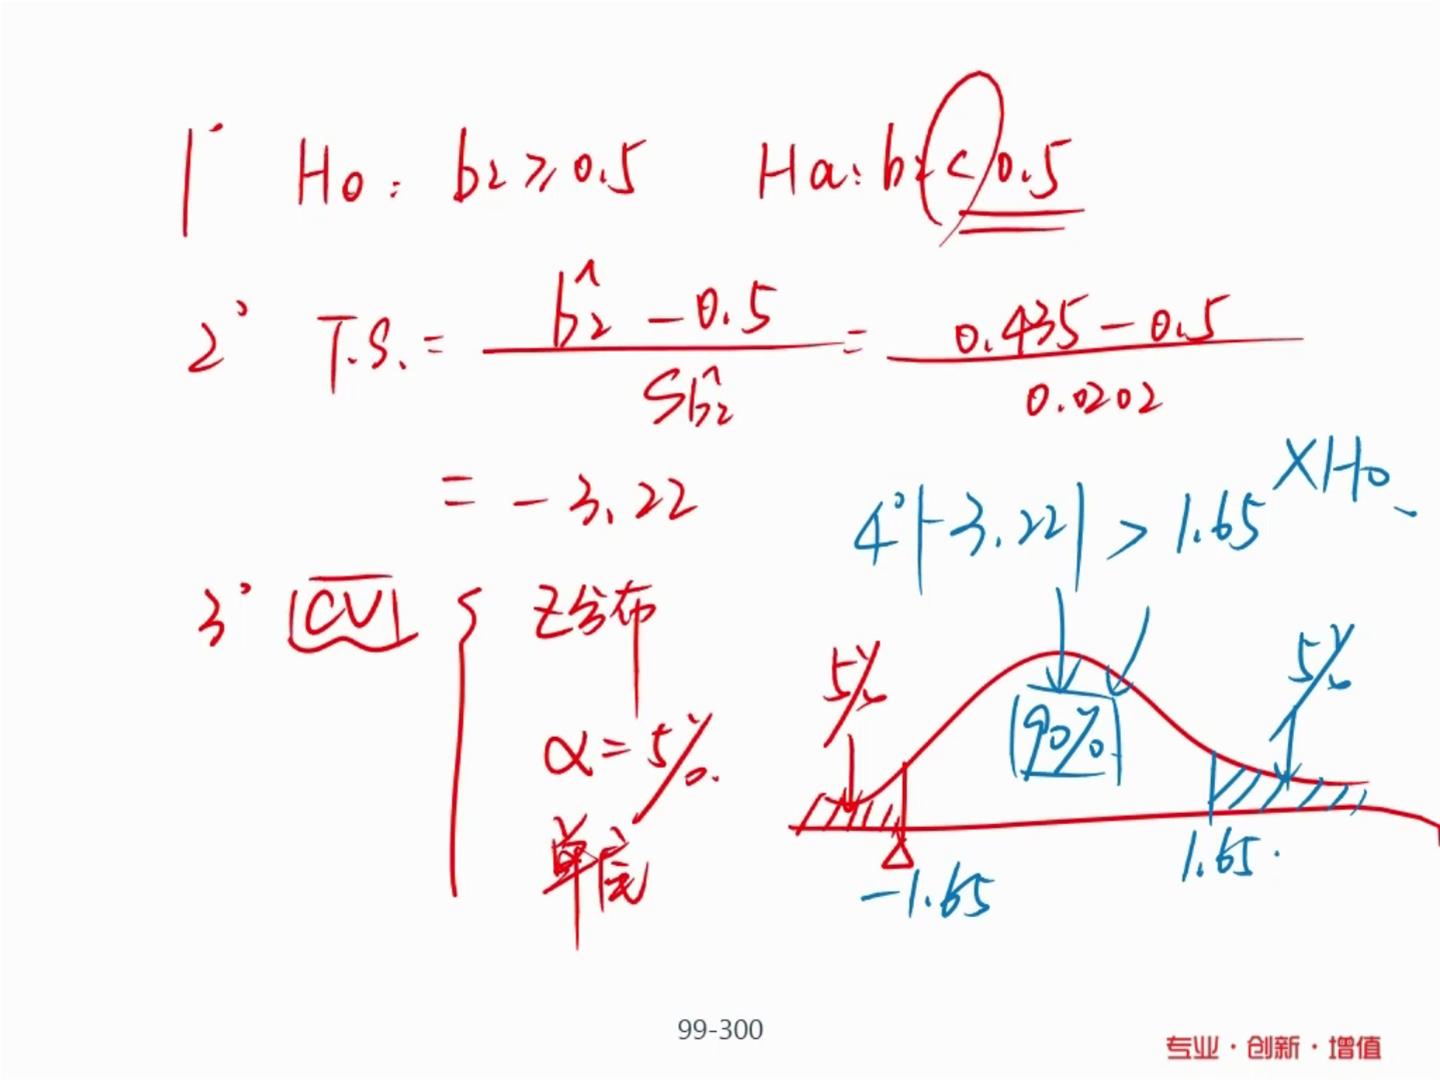 1° H0: b2 ≥ 0.5 Ha: b2 < 0.5
2° T.S. = (b̂2 - 0.5) / Sb̂2 = (0.435 - 0.5) / 0.0202
= -3.22
3° CV { Z分布
α = 5%
单尾
4° |-3.22| > 1.65 XH0
5% 90% 5%
-1.65 1.65
99-300
专业·创新·增值